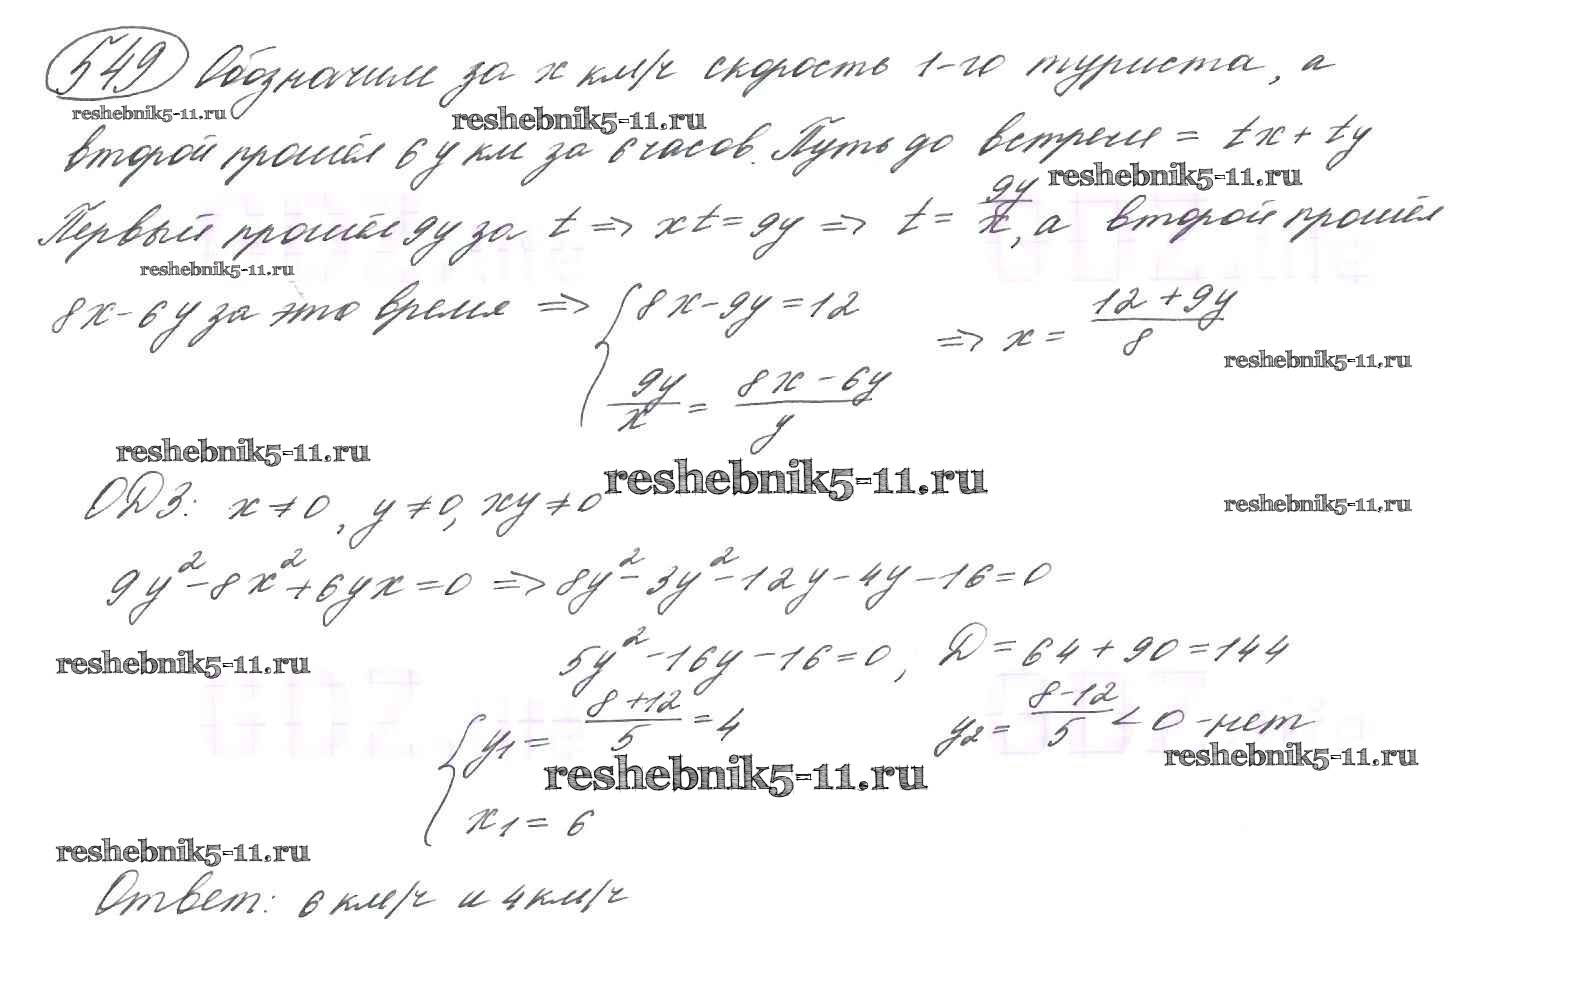 549 Обозначим за x км/ч скорость 1-го туриста, а
reshebnik5-11.ru reshebnik5-11.ru
второй прошёл 6y км за 6 часов. Путь до встречи = tx + ty
reshebnik5-11.ru
Первый прошёл 9y за t => xt = 9y => t = 9y/x, а второй прошёл
reshebnik5-11.ru
8x - 6y за это время => { 8x - 9y = 12 => x = (12 + 9y)/8
reshebnik5-11.ru
9y/x = (8x - 6y)/y
reshebnik5-11.ru
reshebnik5-11.ru
ОДЗ: x ≠ 0, y ≠ 0, xy ≠ 0
reshebnik5-11.ru
9y² - 8x² + 6yx = 0 => 8y² - 3y² - 12y - 4y - 16 = 0
reshebnik5-11.ru
5y² - 16y - 16 = 0, D = 64 + 90 = 144
{ y1 = (8 + 12)/5 = 4 y2 = (8 - 12)/5 < 0 - нет
reshebnik5-11.ru reshebnik5-11.ru
x1 = 6
reshebnik5-11.ru
Ответ: 6 км/ч и 4 км/ч